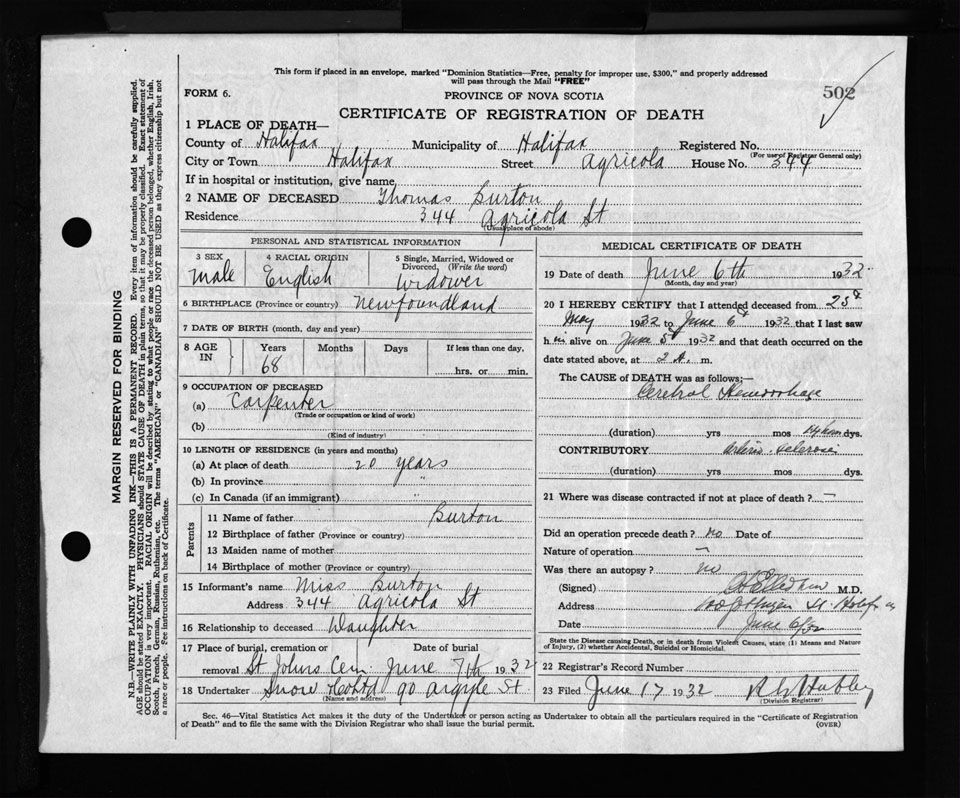 This form if placed in an envelope, marked "Dominion Statistics—Free, penalty for improper use, $300," and properly addressed
will pass through the Mail "FREE"
FORM 6.
PROVINCE OF NOVA SCOTIA
502
CERTIFICATE OF REGISTRATION OF DEATH
1 PLACE OF DEATH—
County of Halifax Municipality of Halifax Registered No.
(For use of Registrar General only)
City or Town Halifax Street Agricola House No. 344
If in hospital or institution, give name
2 NAME OF DECEASED Thomas Burton
Residence 344 Agricola St
(Usual place of abode)
PERSONAL AND STATISTICAL INFORMATION
3 SEX 4 RACIAL ORIGIN 5 Single, Married, Widowed or
Divorced, (Write the word)
Male English Widower
6 BIRTHPLACE (Province or country) Newfoundland
7 DATE OF BIRTH (month, day and year)
8 AGE IN Years Months Days If less than one day,
68 hrs. or min.
9 OCCUPATION OF DECEASED
(a) Carpenter
(Trade or occupation or kind of work)
(b)
(Kind of industry)
10 LENGTH OF RESIDENCE (in years and months)
(a) At place of death 20 years
(b) In province "
(c) In Canada (if an immigrant) "
Parents
11 Name of father Burton
12 Birthplace of father (Province or country)
13 Maiden name of mother
14 Birthplace of mother (Province or country)
15 Informant's name Miss Burton
Address 344 Agricola St
16 Relationship to deceased Daughter
17 Place of burial, cremation or Date of burial
removal St Johns Cem. June 7th 1932
18 Undertaker Snow & Co Ltd 90 Argyle St.
(Name and address)
MEDICAL CERTIFICATE OF DEATH
19 Date of death June 6th 1932
(Month, day and year)
20 I HEREBY CERTIFY that I attended deceased from 25th
May 1932 to June 6th 1932 that I last saw
him alive on June 5th 1932 and that death occurred on the
date stated above, at 2 A. m.
The CAUSE OF DEATH was as follows;—
Cerebral Hemorrhage
(duration) yrs mos dys.
CONTRIBUTORY Arterio-sclerosis
(duration) yrs mos dys.
21 Where was disease contracted if not at place of death? —
Did an operation precede death? no Date of
Nature of operation —
Was there an autopsy? no
(Signed) M.D.
Address St. Halifax
Date June 6/32
State the Disease causing Death, or in death from Violent Causes, state (1) Means and Nature
of Injury, (2) whether Accidental, Suicidal or Homicidal.
22 Registrar's Record Number
23 Filed June 17 1932
(Division Registrar)
Sec. 46—Vital Statistics Act makes it the duty of the Undertaker or person acting as Undertaker to obtain all the particulars required in the "Certificate of Registration
of Death" and to file the same with the Division Registrar who shall issue the burial permit. (OVER)
MARGIN RESERVED FOR BINDING
N.B.—WRITE PLAINLY WITH UNFADING INK—THIS IS A PERMANENT RECORD. Every item of information should be carefully supplied.
AGE should be stated EXACTLY. PHYSICIANS should STATE CAUSE OF DEATH in plain terms, so that it may be properly classified. Exact statement of
OCCUPATION is very important. RACIAL ORIGIN will be described by stating to what people or race the deceased person belonged, whether English, Irish,
Scotch, French, German, Russian, Ruthenian, etc. The terms "AMERICAN" or "CANADIAN" SHOULD NOT BE USED as they express citizenship but not
a race or people. Fee instructions on back of Certificate.